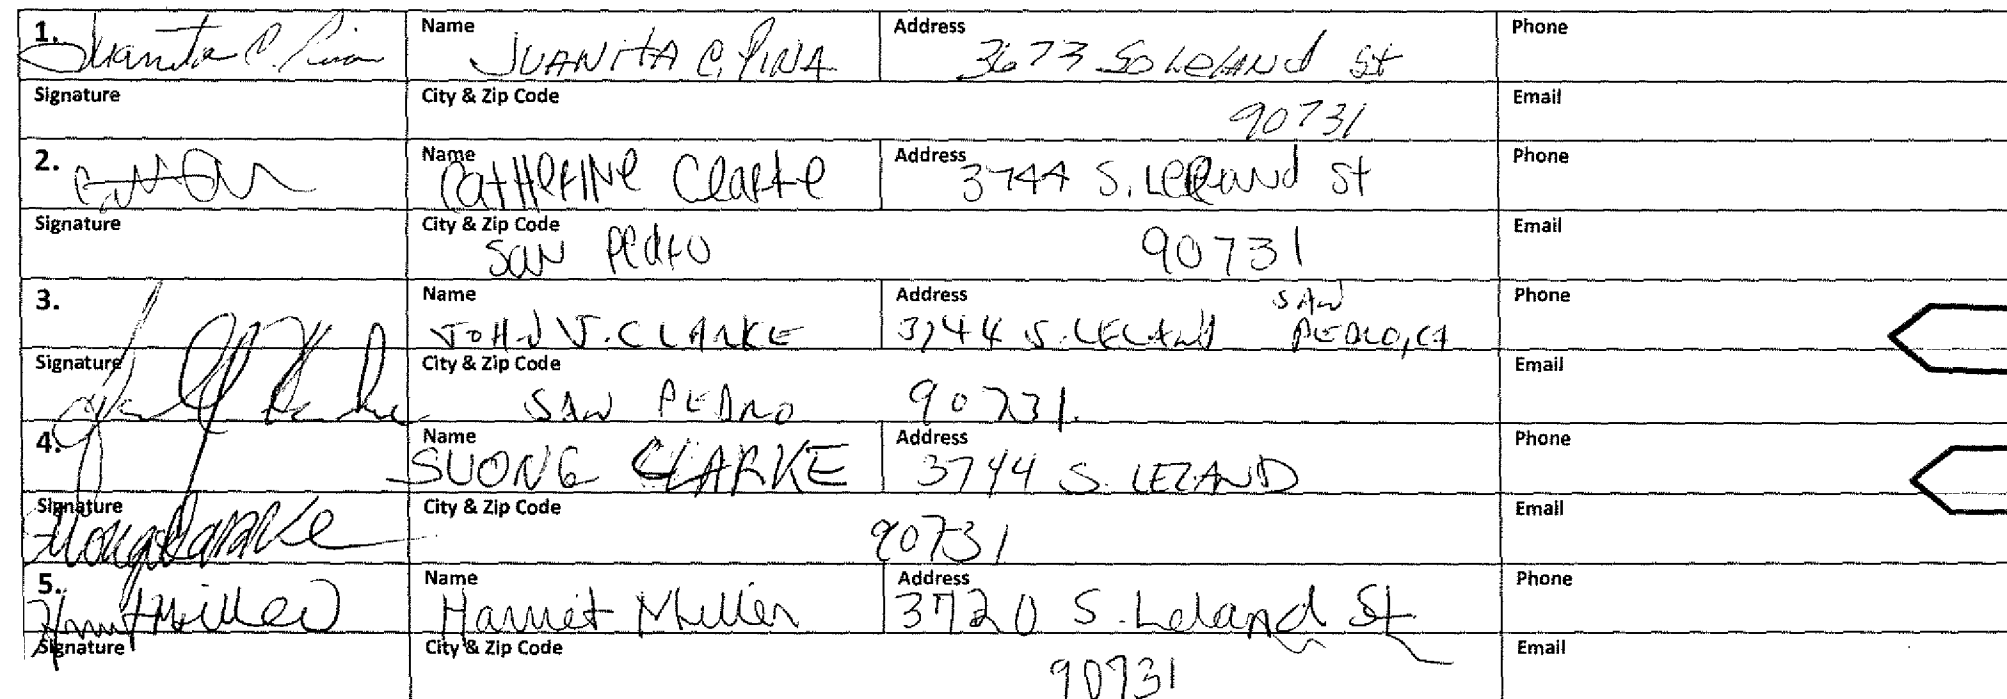 1. Juanita C. Pina Name JUANITA C. PINA Address 3673 So Leland St Phone
Signature City & Zip Code 90731 Email
2. Name Catherine Clarke Address 3744 S. Leland St Phone
Signature City & Zip Code San Pedro 90731 Email
3. Name JOHN J. CLARKE Address 3744 S. LELAND SAN PEDRO, CA Phone
Signature City & Zip Code SAN PEDRO 90731. Email
4. Name SUONG CLARKE Address 3744 S. LELAND Phone
Signature City & Zip Code 90731 Email
5. Harriet Miller Name Harriet Miller Address 3720 S. Leland St Phone
Signature City & Zip Code 90731 Email